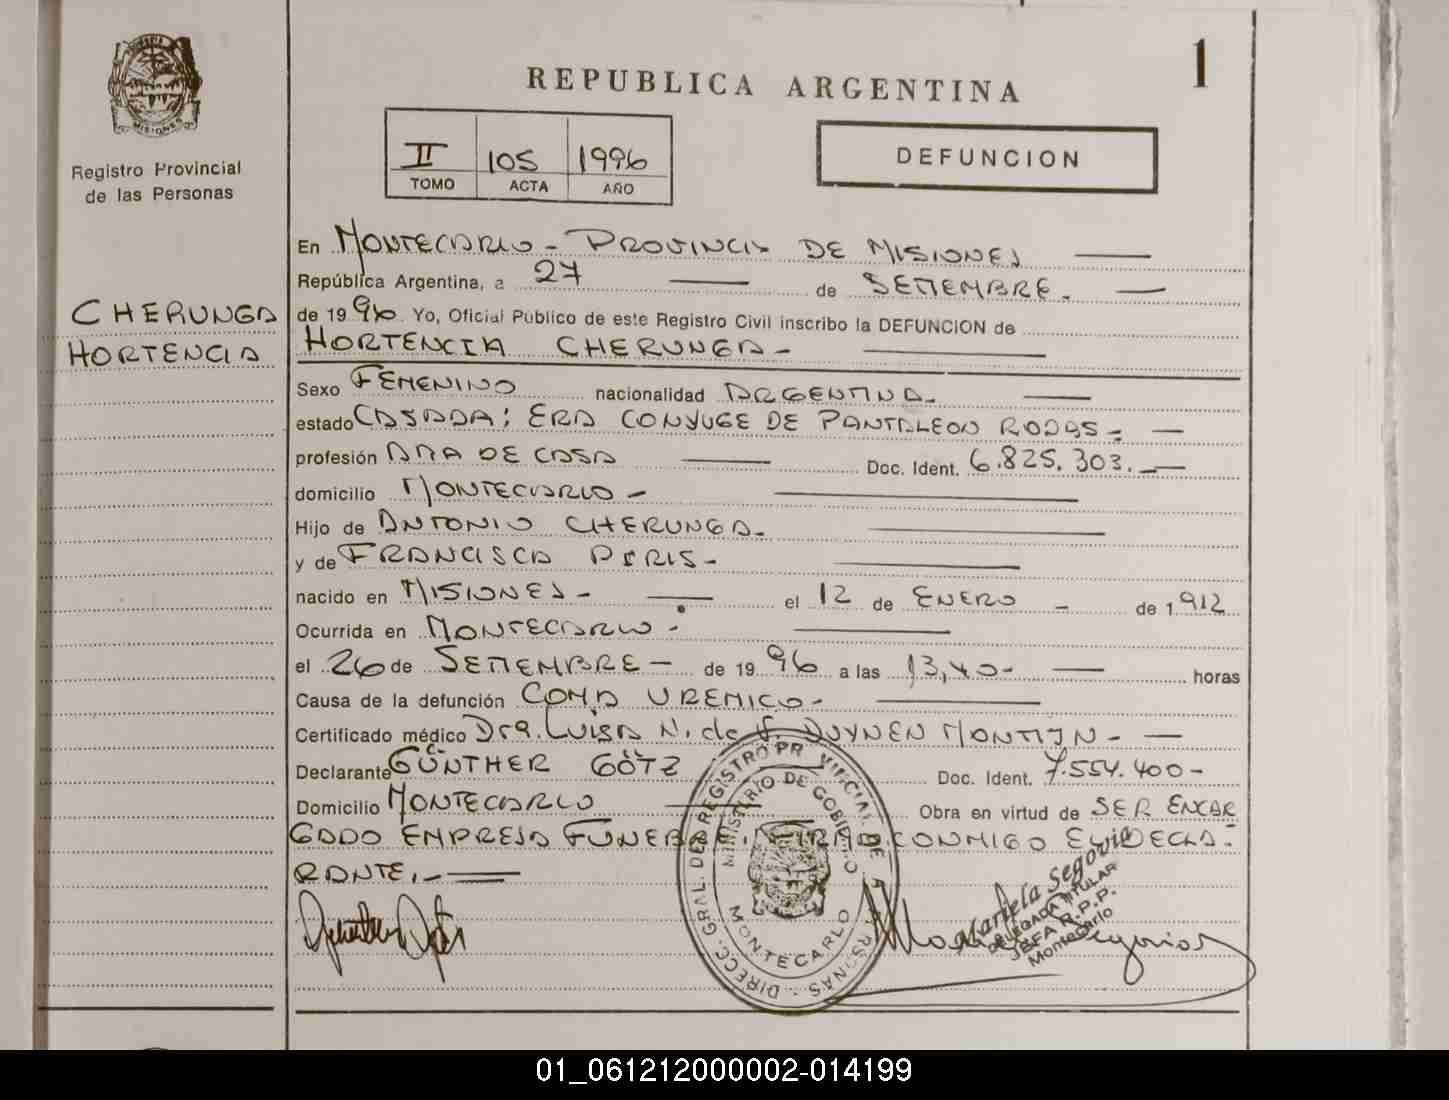 REPUBLICA ARGENTINA
1
PROVINCIA DE
MISIONES
Registro Provincial
de las Personas
II 105 1996
TOMO ACTA AÑO
DEFUNCION
CHERUNGA
HORTENCIA
En MONTECARLO - PROVINCIA DE MISIONES
República Argentina, a 27 de SETIEMBRE.
de 1996 Yo, Oficial Público de este Registro Civil inscribo la DEFUNCION de
HORTENCIA CHERUNGA -
Sexo FEMENINO nacionalidad ARGENTINA.
estado CASADA; ERA CONYUGE DE PANTALEON RODAS -
profesión AMA DE CASA Doc. Ident. 6.825.303.-
domicilio MONTECARLO -
Hijo de ANTONIO CHERUNGA.
y de FRANCISCA PIRIS -
nacido en MISIONES - el 12 de ENERO - de 1912
Ocurrida en MONTECARLO -
el 26 de SETIEMBRE - de 1996 a las 13,40 - horas
Causa de la defunción COMA UREMICO -
Certificado médico Dra. LUISA N. de V. DUYNEN MONTIJN -
Declarante GÜNTHER GÖTZ Doc. Ident. 7.554.400 -
Domicilio MONTECARLO Obra en virtud de SER ENCAR
GADO EMPRESA FUNEBRE. FIRMA CONMIGO EL DECLA-
RANTE.-
DIRECC. GRAL. DEL REGISTRO PROVINCIAL DE PERSONAS
MINISTERIO DE GOBIERNO
MONTECARLO
Mariela Segovia
DELEGADA TITULAR
JEFA R.P.P.
Montecarlo
01_061212000002-014199